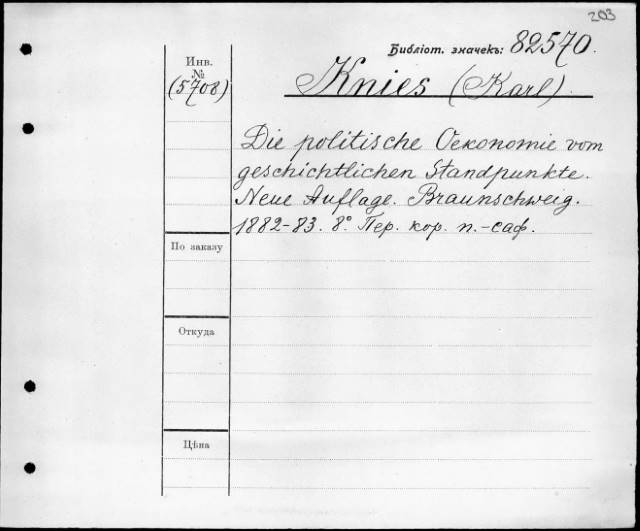 203
Библіот. значекъ: 82570.
Инв.
№
(5708)
Knies (Karl)
Die politische Oekonomie vom
geschichtlichen Standpunkte.
Neue Auflage. Braunschweig.
1882-83. 8° Пер. кор. п.-саф.
По заказу
Откуда
Цѣна